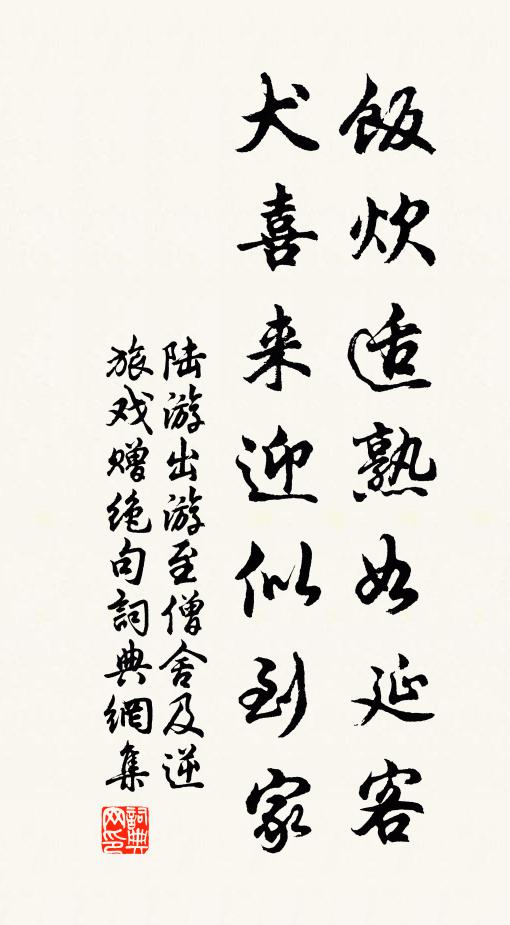 飯炊适熟如延客
犬喜来迎似到家
陆游出游至僧舍及逆
旅戏赠绝句詞典網集
詞典网印